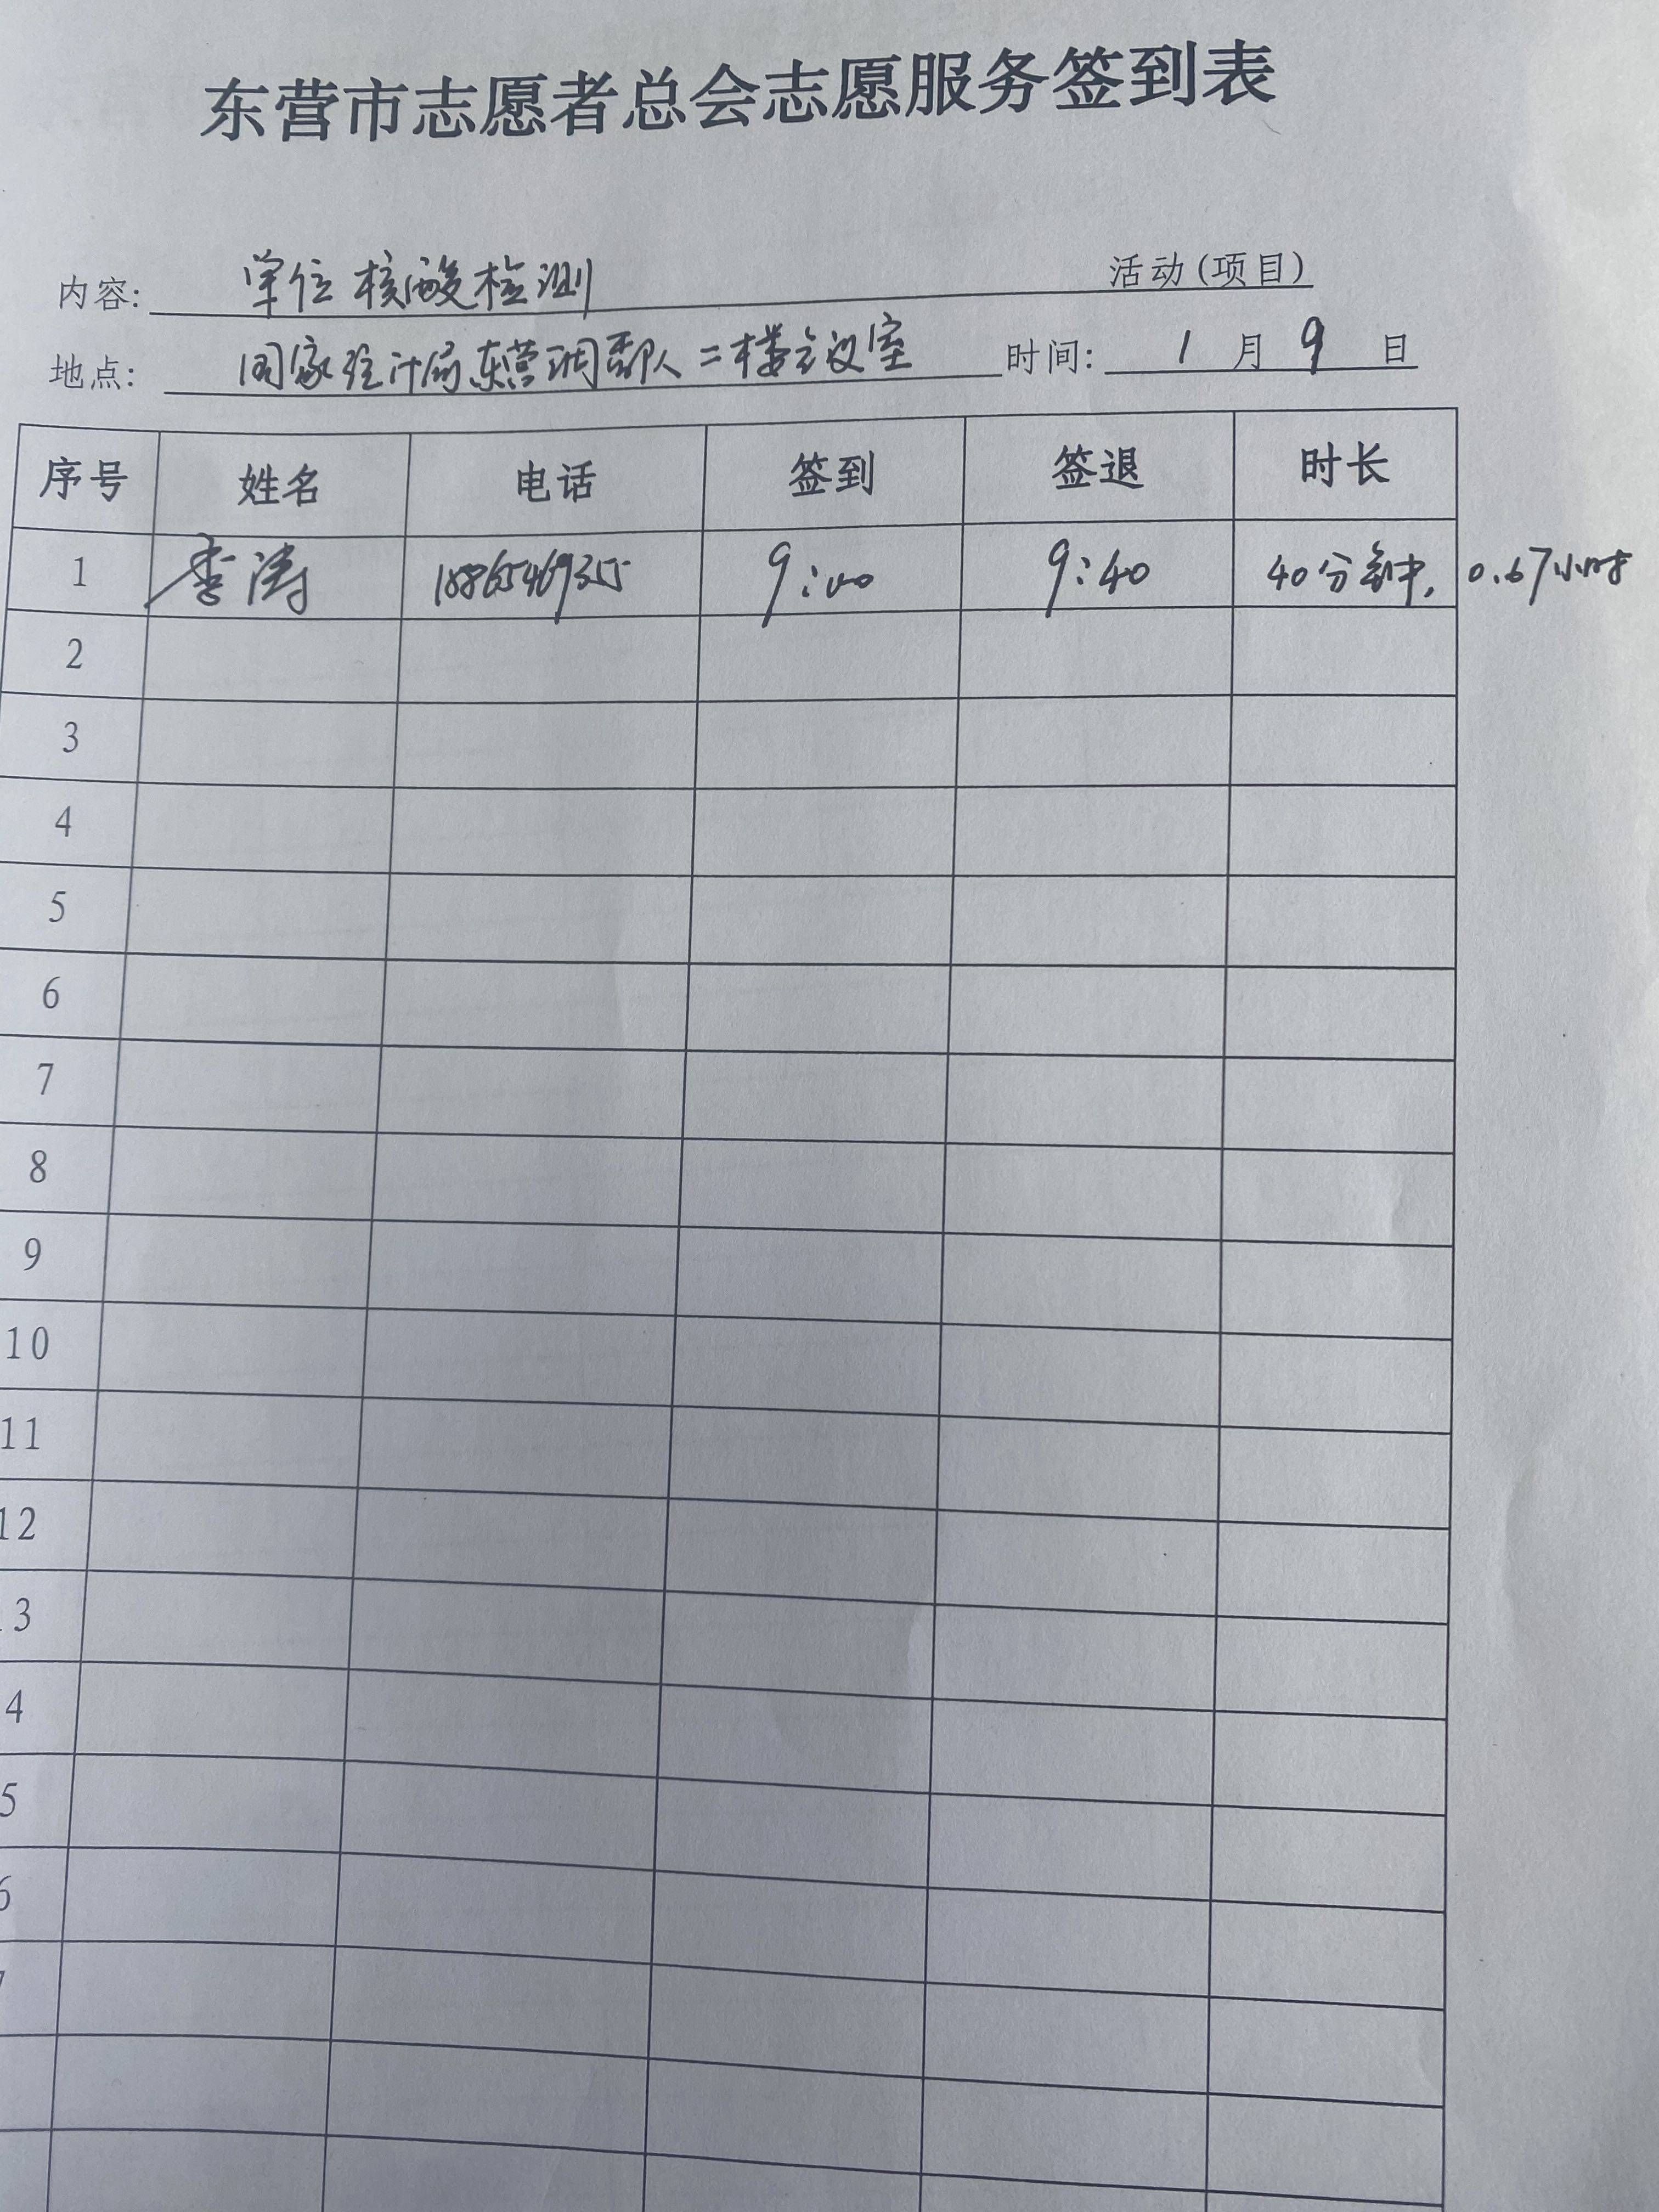 东营市志愿者总会志愿服务签到表
内容: 单位核酸检测 活动(项目)
地点: 国家统计局东营调查队二楼会议室 时间: 1月9日
序号 姓名 电话 签到 签退 时长
1 李涛 18865469355 9:00 9:40 40分钟, 0.67小时
2
3
4
5
6
7
8
9
10
11
12
3
4
5
6
7